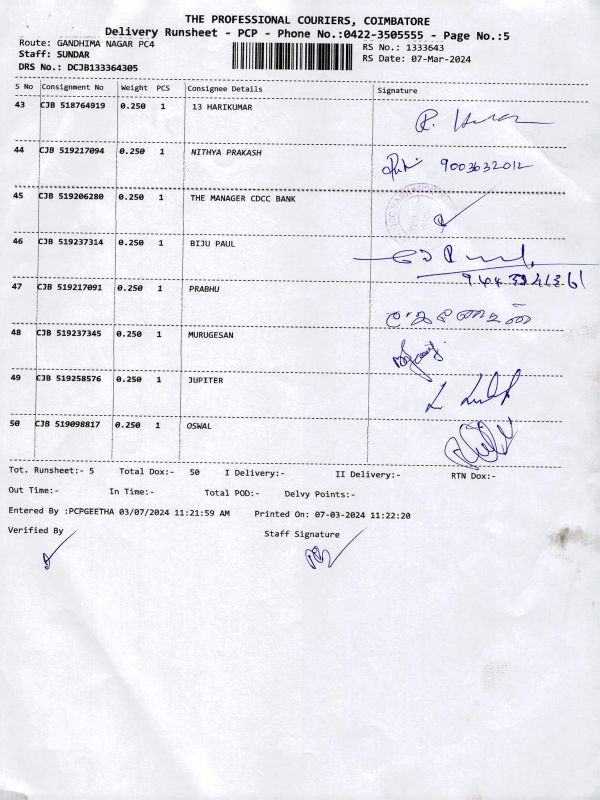 THE PROFESSIONAL COURIERS, COIMBATORE
Delivery Runsheet - PCP - Phone No.:0422-3505555 - Page No.:5
Route: GANDHIMA NAGAR PC4
RS No.: 1333643
Staff: SUNDAR
RS Date: 07-Mar-2024
DRS No.: DCJB133364305
S No Consignment No Weight PCS Consignee Details Signature
43 CJB 518764919 0.250 1 13 HARIKUMAR
44 CJB 519217094 0.250 1 NITHYA PRAKASH 9003632012
45 CJB 519206280 0.250 1 THE MANAGER CDCC BANK
46 CJB 519237314 0.250 1 BIJU PAUL
47 CJB 519217091 0.250 1 PRABHU
48 CJB 519237345 0.250 1 MURUGESAN
49 CJB 519258576 0.250 1 JUPITER
50 CJB 519098817 0.250 1 OSWAL
Tot. Runsheet:- 5 Total Dox:- 50 I Delivery:- II Delivery:- RTN Dox:-
Out Time:- In Time:- Total POD:- Delvy Points:-
Entered By :PCPGEETHA 03/07/2024 11:21:59 AM Printed On: 07-03-2024 11:22:20
Verified By Staff Signature